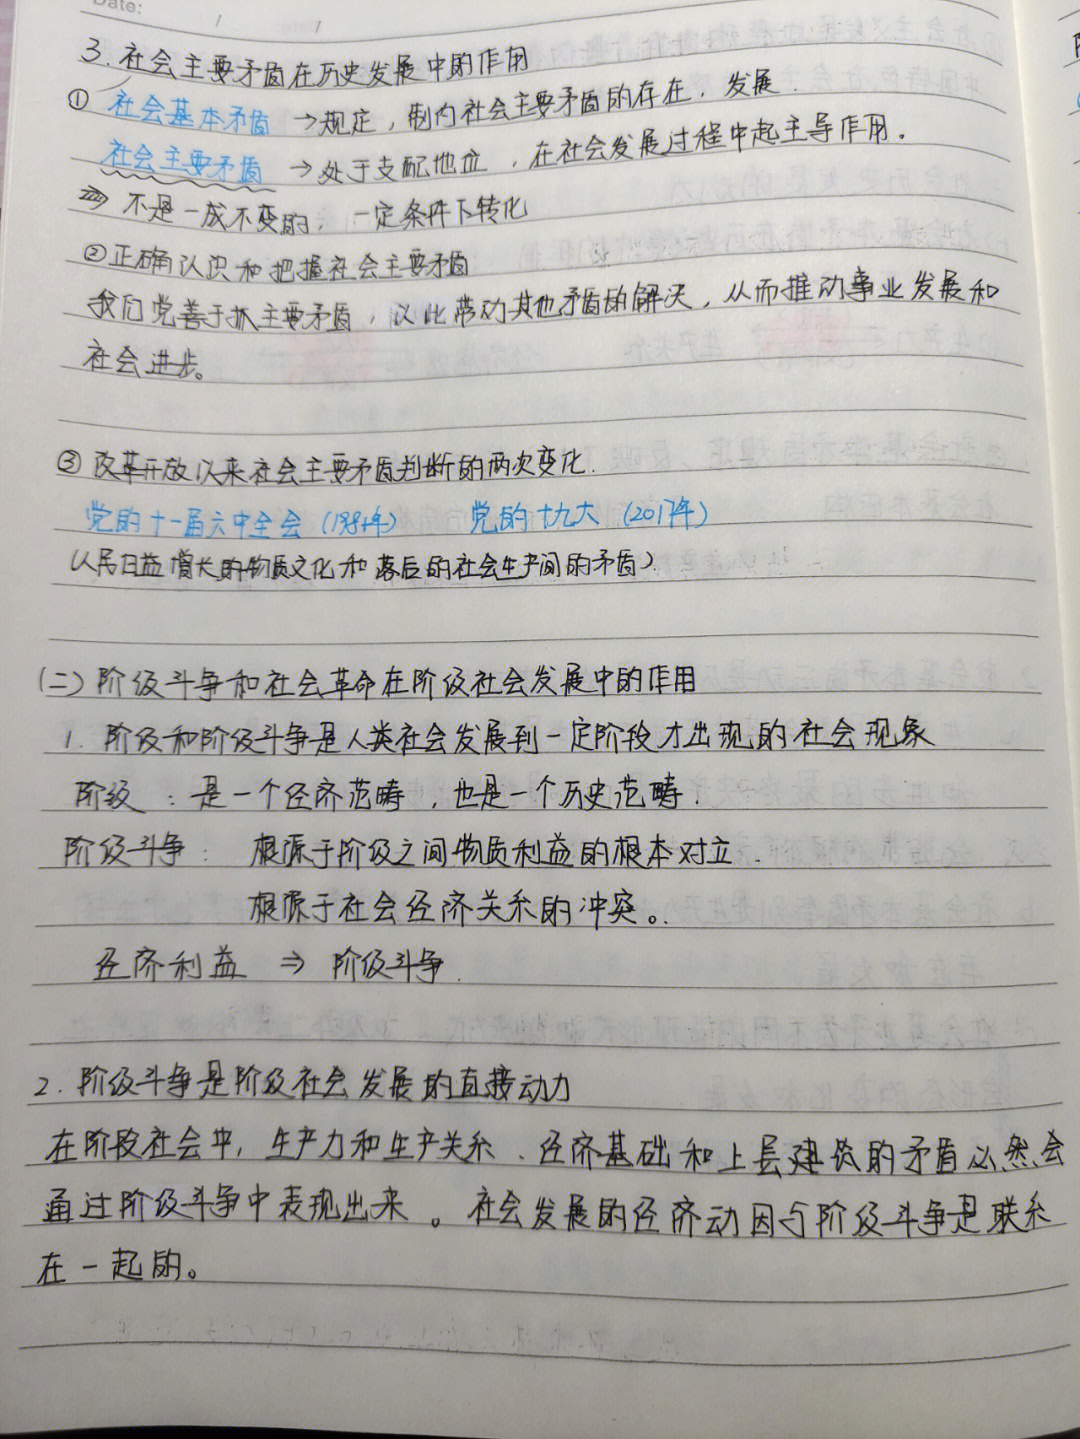 Date:
3. 社会主要矛盾在历史发展中的作用
① 社会基本矛盾 →规定，制约社会主要矛盾的存在，发展.
社会主要矛盾 →处于支配地位，在社会发展过程中起主导作用。
⇒ 不是一成不变的，一定条件下转化
②正确认识和把握社会主要矛盾
我们党善于抓主要矛盾，以此带动其他矛盾的解决，从而推动事业发展和
社会进步。
③ 改革开放以来社会主要矛盾判断的两次变化.
党的十一届六中全会 党的十九大 (2017年)
(人民日益增长的物质文化和落后的社会生产间的矛盾)
(二) 阶级斗争和社会革命在阶级社会发展中的作用
1. 阶级和阶级斗争是人类社会发展到一定阶段才出现的社会现象
阶级 : 是一个经济范畴，也是一个历史范畴.
阶级斗争: 根源于阶级之间物质利益的根本对立.
根源于社会经济关系的冲突。
经济利益 ⇒ 阶级斗争.
2. 阶级斗争是阶级社会发展的直接动力
在阶段社会中，生产力和生产关系、经济基础和上层建筑的矛盾必然会
通过阶级斗争中表现出来。社会发展的经济动因与阶级斗争是联系
在一起的。